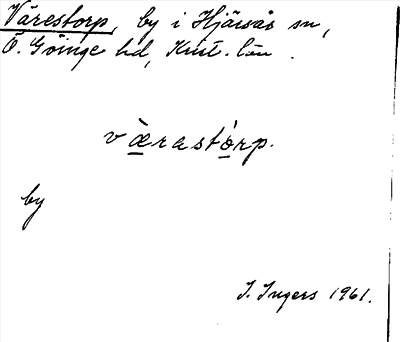 Vårestorp, by i Hjärsås sn,
Ö. Göinge hd, Krist. län.
værastorp.
by
I. Ingers 1961.